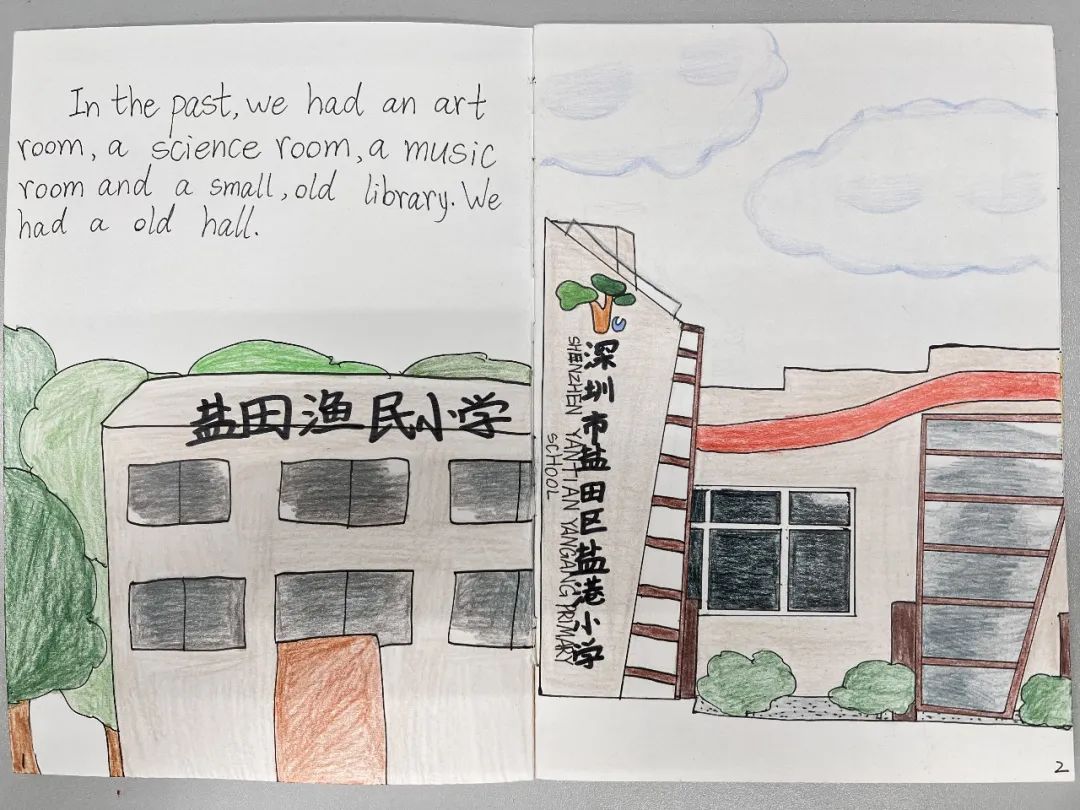 In the past, we had an art
room, a science room, a music
room and a small, old library. We
had a old hall.
盐田渔民小学
深圳市盐田区盐港小学
SHENZHEN YANTIAN YANGANG PRIMARY
SCHOOL
1
2